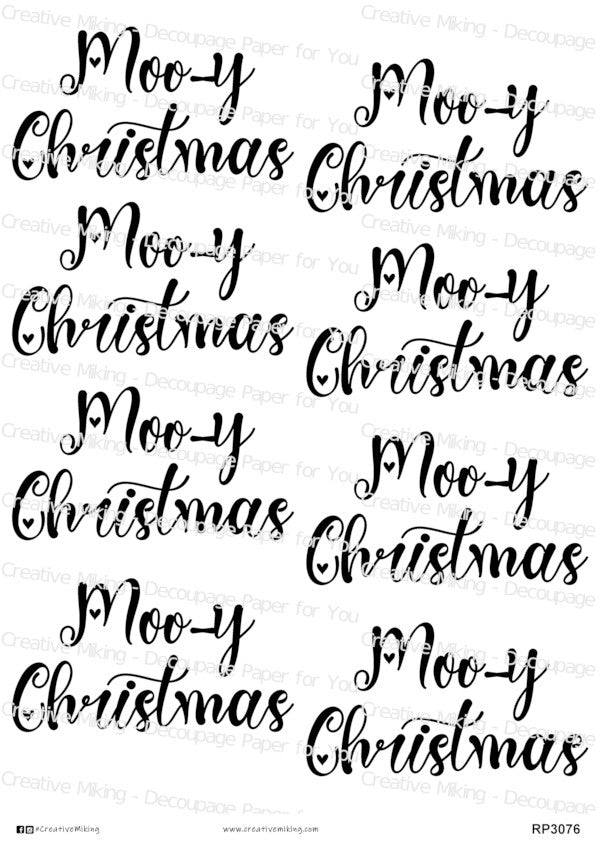 Moo-y
Christmas
Moo-y
Christmas
Moo-y
Christmas
Moo-y
Christmas
Moo-y
Christmas
Moo-y
Christmas
Moo-y
Christmas
Moo-y
Christmas
Creative Miking - Decoupage Paper for You
#CreativeMiking
www.creativemiking.com
RP3076